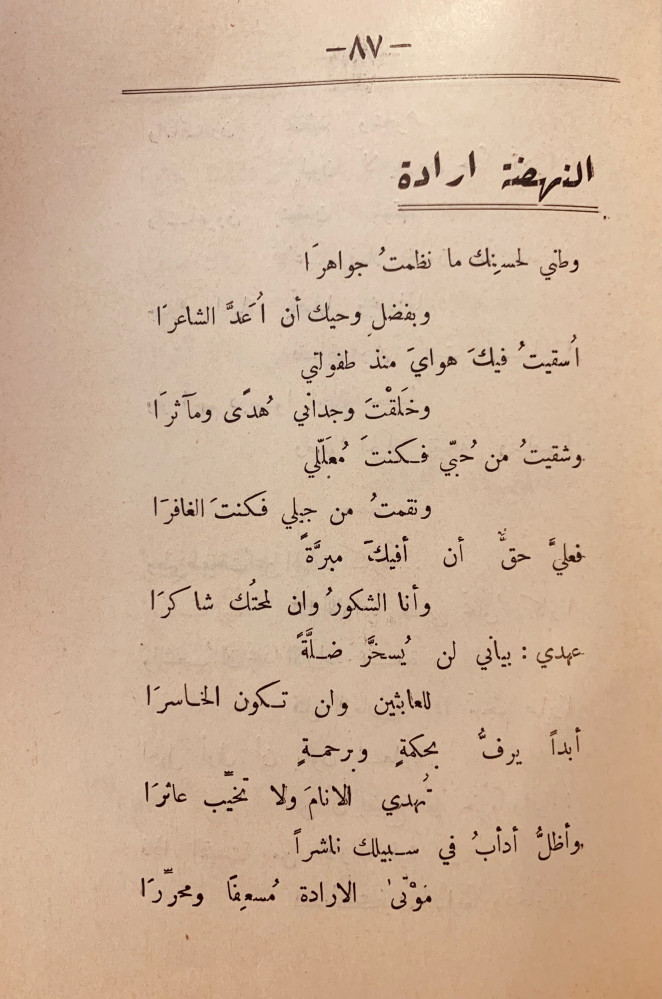 -٨٧-
النهضة ارادة
وطني لحسنِك ما نظمتُ جواهرَا
وبفضلِ وحيك أن اُعَدَّ الشاعرَا
اُسقيتُ فيكَ هوايَ منذ طفولتي
وخَلَقْتَ وجداني هُدًى ومآثرَا
وشقيتُ من حُبّي فـكنتَ مُعَلّلي
ونقمتُ من جيلي فكنتَ الغافرَا
فعليَّ حقٌّ أن أفيكَ مبرَّةً
وأنا الشكورُ وان لمحتُك شاكرَا
عهدي : بياني لن يُسخرَّ ضلَّةً
للعابثين ولن تكون الخاسرَا
أبداً يرفُّ بحكمةٍ وبرحمةٍ
تُهدي الانامَ ولا تخيّب عاثرَا
وأظلُّ أدأبُ في سبيلك ناشراً
مَوْتىٰ الارادة مُسعِفًا ومحرِّرَا